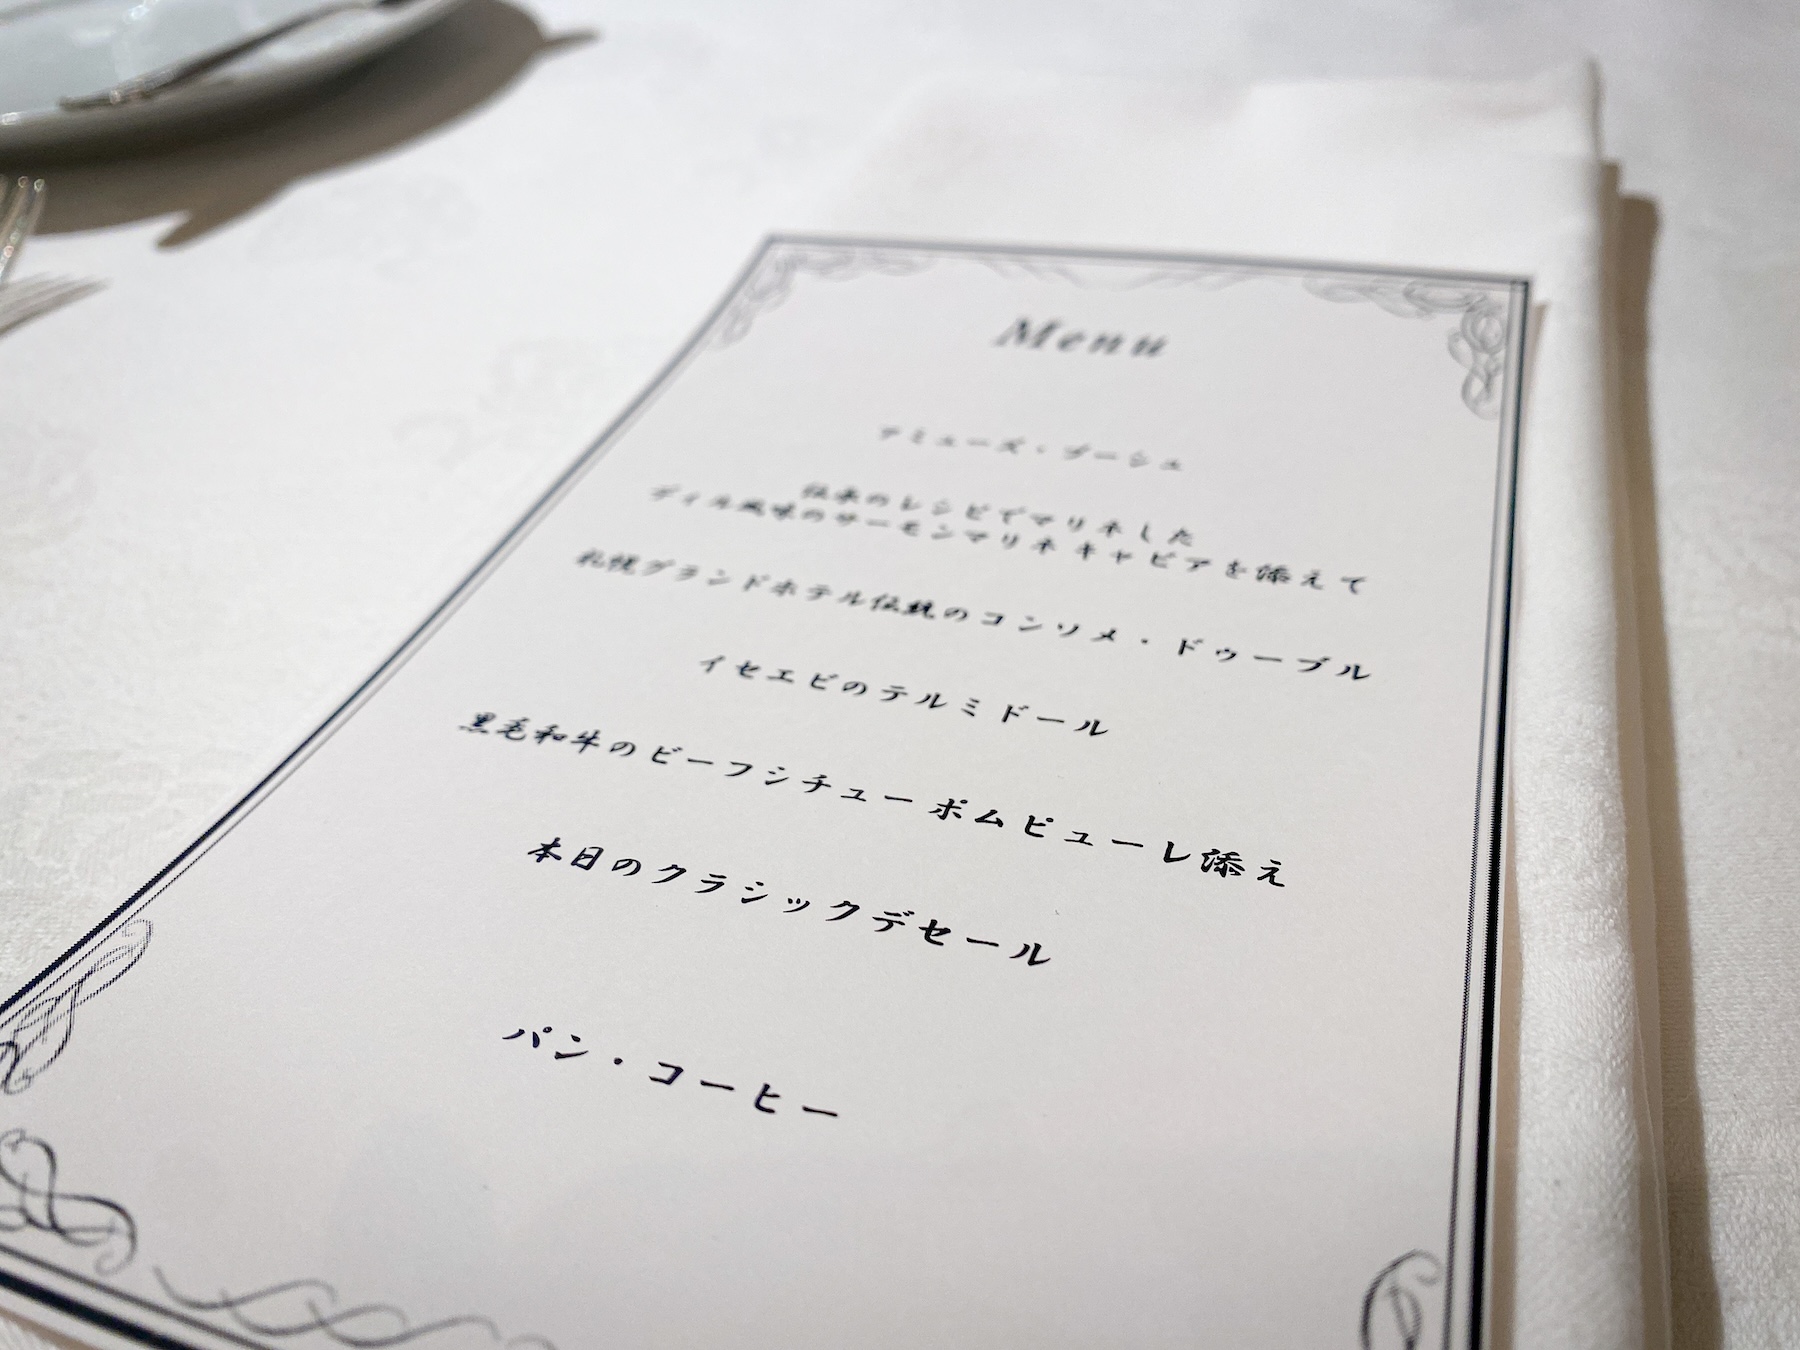 Menu
アミューズ・ブーシュ
伝承のレシピでマリネした
ディル風味のサーモンマリネ キャビアを添えて
札幌グランドホテル伝統のコンソメ・ドゥーブル
イセエビのテルミドール
黒毛和牛のビーフシチュー ポムピューレ添え
本日のクラシックデセール
パン・コーヒー